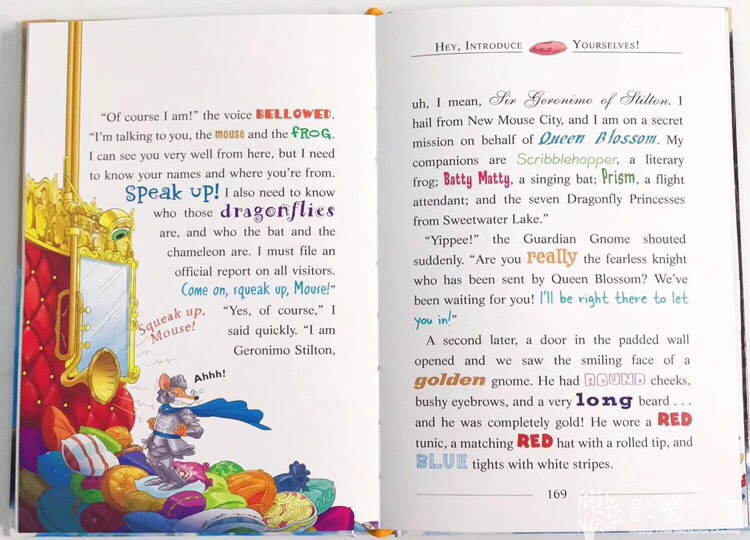 "Of course I am!" the voice BELLOWED.
"I'm talking to you, the mouse and the frog.
I can see you very well from here, but I need
to know your names and where you're from.
Speak up! I also need to know
who those dragonflies
are, and who the bat and the
chameleon are. I must file an
official report on all visitors.
Come on, squeak up, Mouse!"
"Yes, of course," I
said quickly. "I am
Geronimo Stilton,
Squeak up,
Mouse!
Ahhh!
HEY, INTRODUCE YOURSELVES!
uh, I mean, Sir Geronimo of Stilton. I
hail from New Mouse City, and I am on a secret
mission on behalf of Queen Blossom. My
companions are Scribblehopper, a literary
frog; Batty Matty, a singing bat; Prism, a flight
attendant; and the seven Dragonfly Princesses
from Sweetwater Lake."
"Yippee!" the Guardian Gnome shouted
suddenly. "Are you really the fearless knight
who has been sent by Queen Blossom? We've
been waiting for you! I'll be right there to let
you in!"
A second later, a door in the padded wall
opened and we saw the smiling face of a
golden gnome. He had ROUND cheeks,
bushy eyebrows, and a very long beard . . .
and he was completely gold! He wore a RED
tunic, a matching RED hat with a rolled tip, and
BLUE tights with white stripes.
169